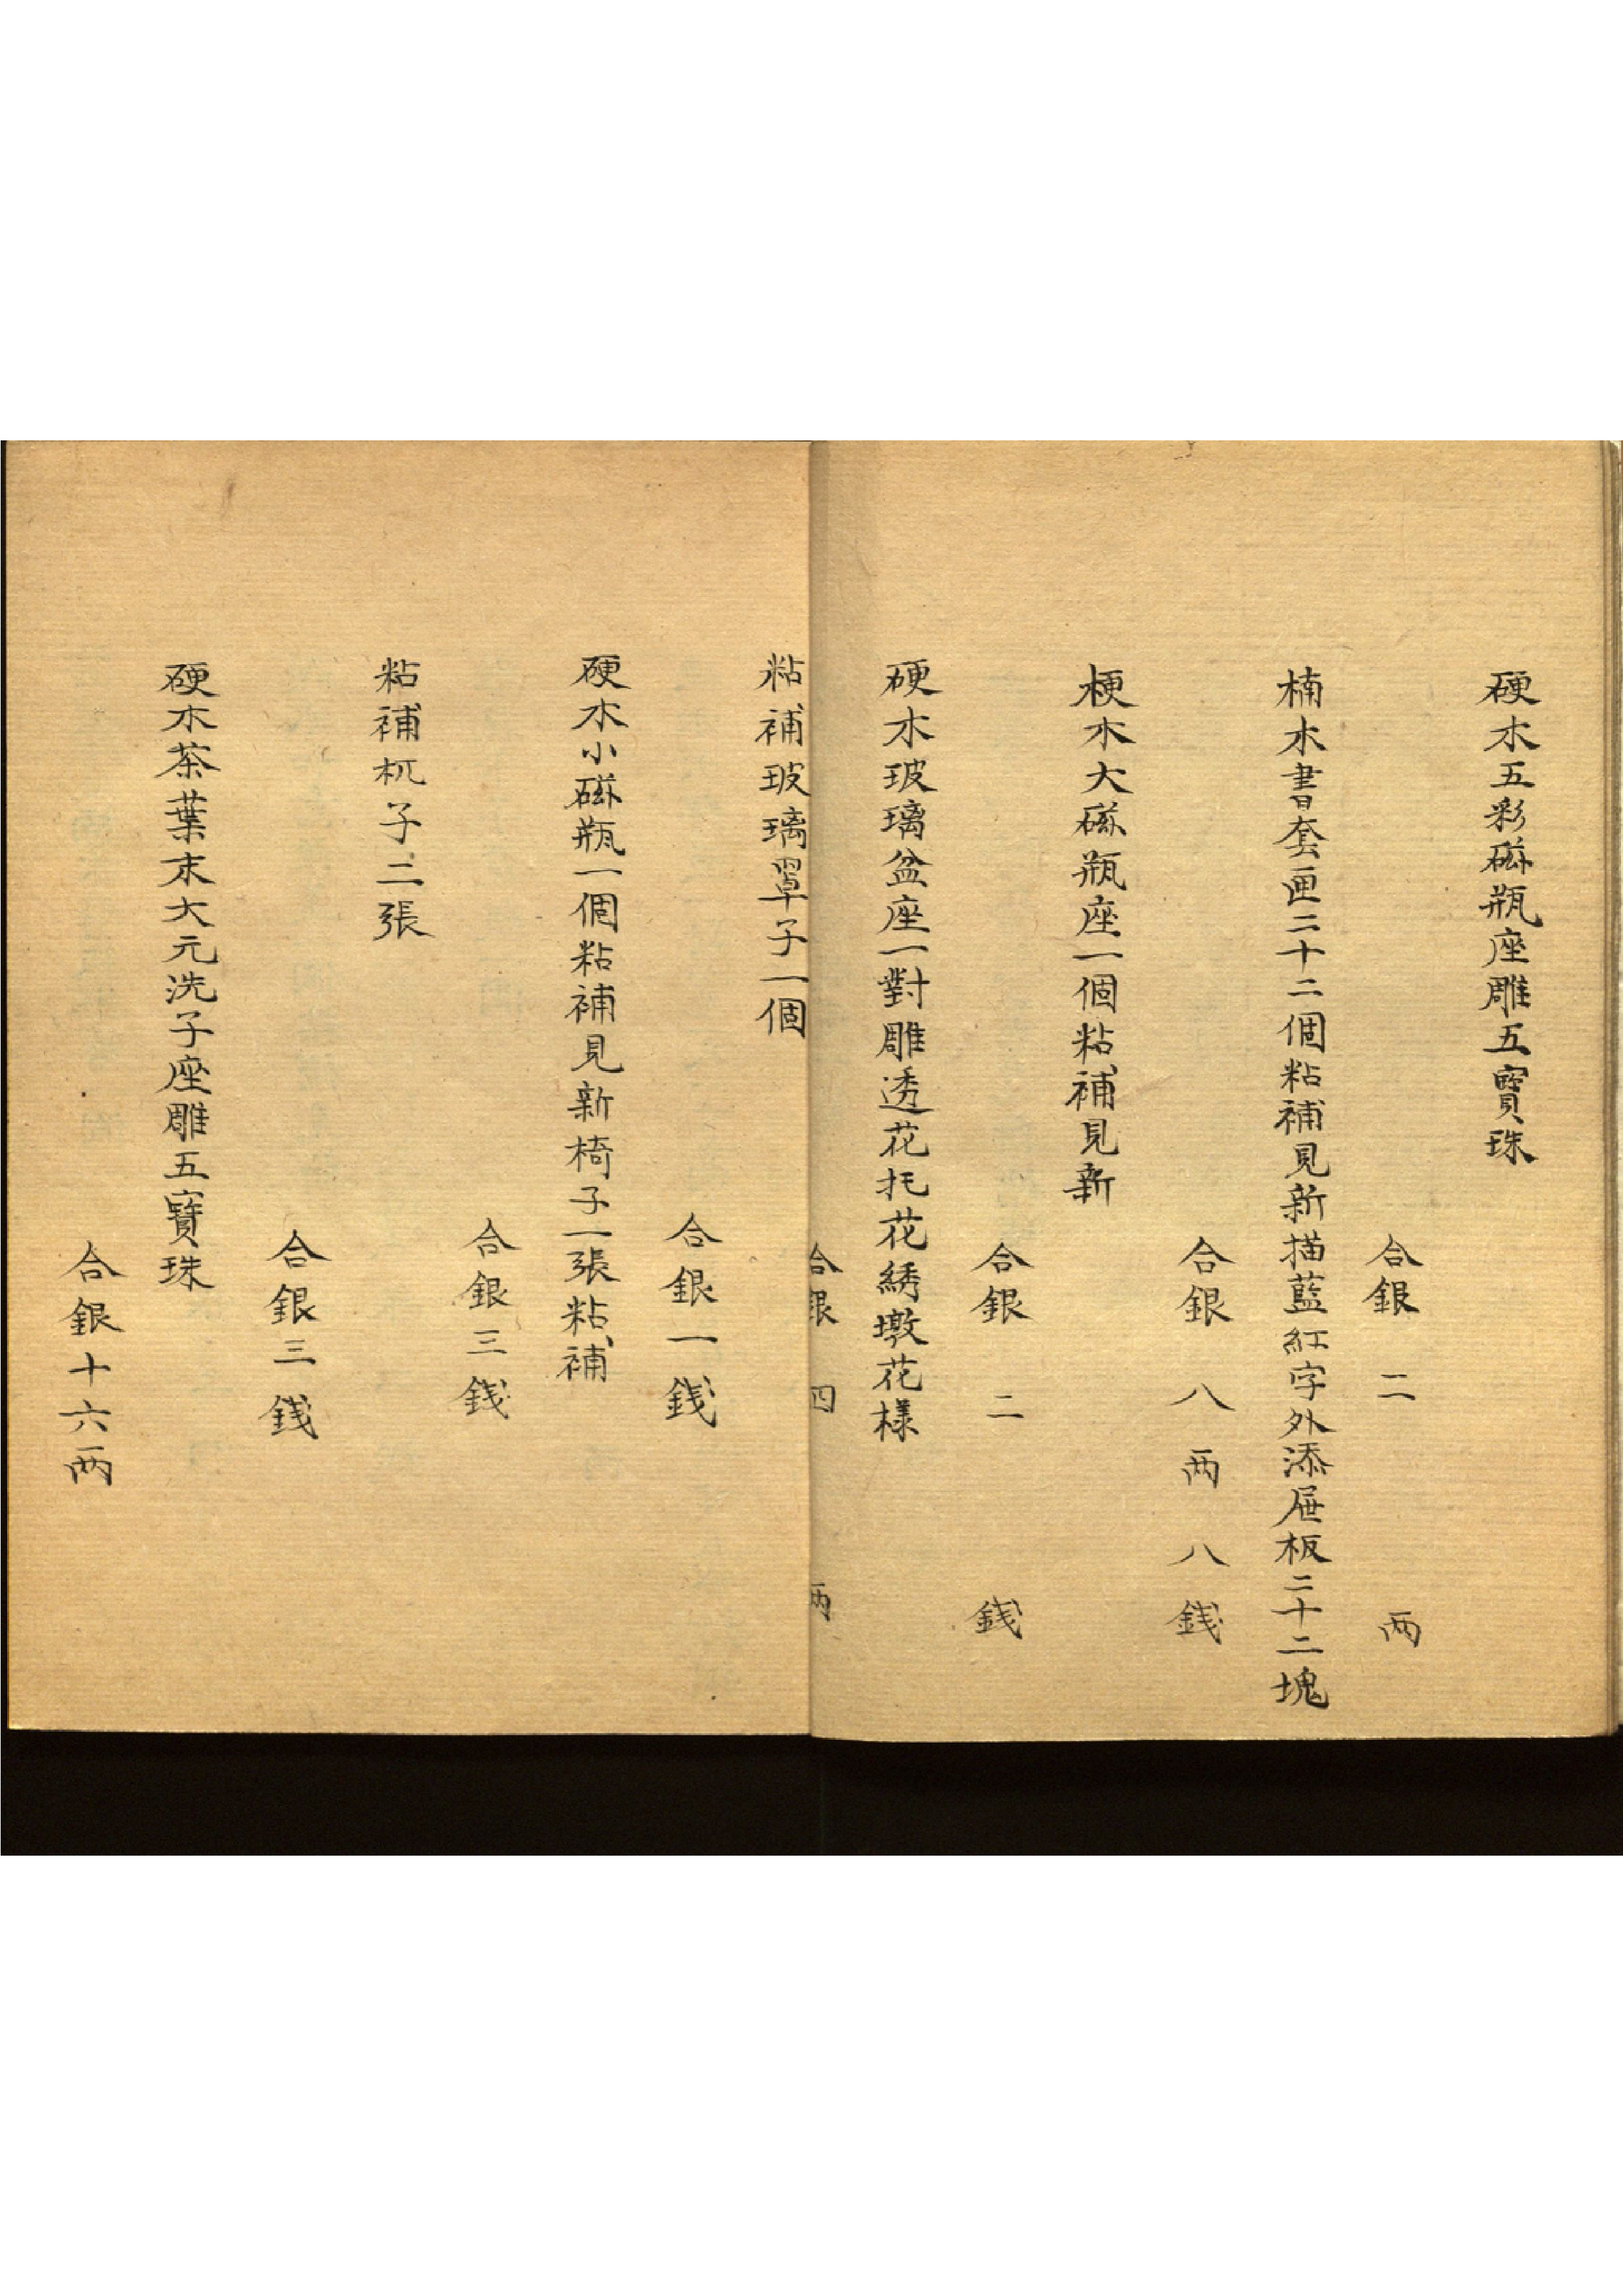 硬木五彩磁瓶座雕五寳珠
合銀二兩
楠木書套匣二十二個粘補見新描藍紅字外添屉板二十二塊
合銀八兩八錢
梗木大磁瓶座一個粘補見新
合銀二錢
硬木玻璃盆座一對雕透花托花綉墩花樣
合銀四兩
粘補玻璃罩子一個
合銀一錢
硬木小磁瓶一個粘補見新椅子一張粘補
合銀三錢
粘補杌子二張
合銀三錢
硬木茶葉末大元洗子座雕五寳珠
合銀十六兩